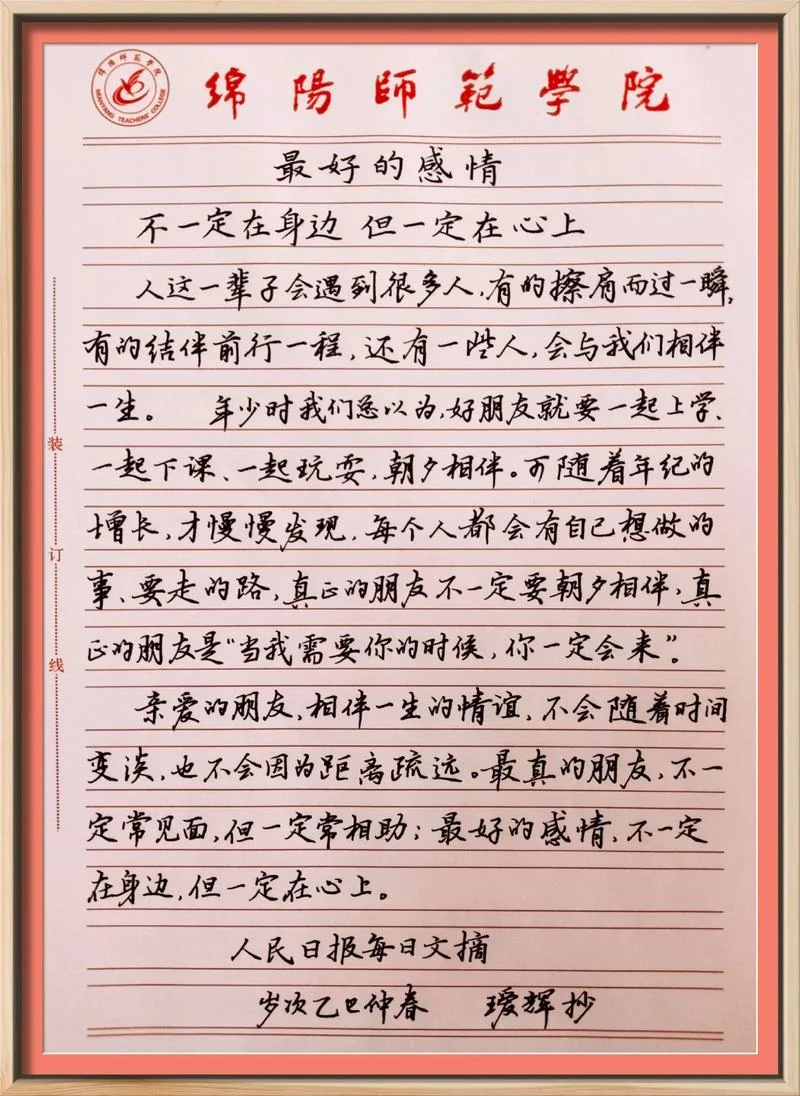 绵陽師範學院
绵陽师范学院
MIANYANG TEACHERS' COLLEGE
最好的感情
不一定在身边 但一定在心上
人这一辈子会遇到很多人,有的擦肩而过一瞬,
有的结伴前行一程,还有一些人,会与我们相伴
一生。 年少时我们总以为,好朋友就要一起上学、
一起下课、一起玩耍,朝夕相伴。可随着年纪的
增长,才慢慢发现,每个人都会有自己想做的
事、要走的路,真正的朋友不一定要朝夕相伴,真
正的朋友是“当我需要你的时候,你一定会来”。
亲爱的朋友,相伴一生的情谊,不会随着时间
变淡,也不会因为距离疏远。最真的朋友,不一
定常见面,但一定常相助;最好的感情,不一定
在身边,但一定在心上。
人民日报每日文摘
岁次乙巳仲春 瑷辉抄
装
订
线